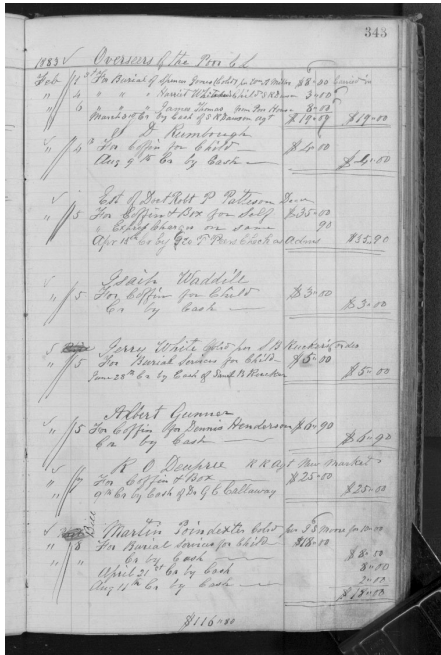 343
1883 Overseers of the Poor C L
Feb 1st For Burial of Spencer Jones Cold $8-00
" 4 " " " Harriet Child S R Dawson 3-00
" 6 " " " James Thomas from Poor House 8-00
March Cr by Cash of S R Dawson Agt $19-00 $19-00
J D Rumbough
" 4th For Coffin for Child $4-00
Aug 9th Cr by Cash $4-00
Est of Doct Robt P Patteson
" 5 For Coffin & Box for Self $35-00
" Express Charges on same 90
Apr 18th Cr by Geo P Check as Admr $35,90
Isaih Waddill
" 5 For Coffin for Child $3-00
Cr by Cash $3-00
Jerry White Cold for S B Rucker
" 5 For Burial Services for Child $5-00
June 28th Cr by Cash of B Rucker $5-00
Albert Gunner
" 5 For Coffin for Dennis Henderson $6-90
Cr by Cash $6-90
R O Deupree R R Agt New Market
" 7 For Coffin & Box $25-00
9th Cr by Cash of Dr G C Callaway $25-00
Martin Poindexter Cold for Moore for 10-00
" 8 For Burial Services for Child $18-00
" " Cr by Cash $8-00
April 21st Cr by Cash 8-00
Aug 11th Cr by Cash 2-00
$18-00
$116-80